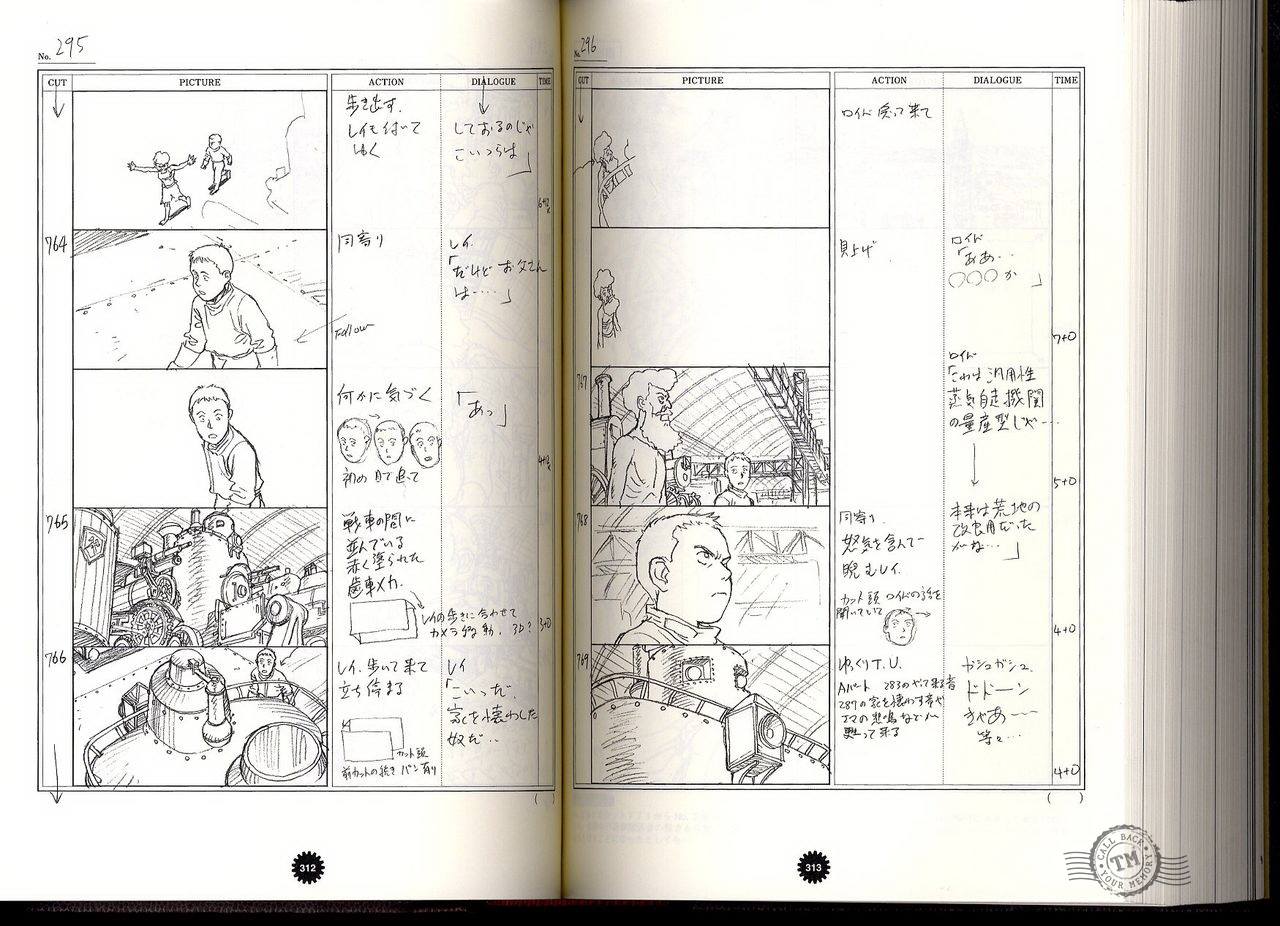 No. 295
CUT PICTURE ACTION DIALOGUE TIME
歩き出す.
レイも
ゆく
しておるのじゃ
こいつらは」
764
同寄り
レイ
「だけど お父さん
は……」
Follow
何かに気づく
「あっ」
初め目で追って
765
戦車の間に
並んでいる
赤く塗られた
歯車メカ.
レイの歩きに合わせて
カメラ移動. 3D?
3+0
766
レイ. 歩いて来て
立ち停まる
カット頭
前カットの続き パン有り
レイ
「こいつだ.
家を壊わした
奴だ..
312
No. 296
CUT PICTURE ACTION DIALOGUE TIME
ロイド 戻って来て
見上げ
ロイド
「ああ..
○○○か」
7+0
767
ロイド
「これは 汎用性
蒸気自走機関
の量産型じゃ…
5+0
768
本来は荒地の
改良用だった
がな…」
同寄り.
怒気を含んで
睨むレイ.
カット頭 ロイドの方を
聞いていて
4+0
769
ゆっくりT.U.
Aパート 283のやって来る音
287の家を壊わす音や
エマの悲鳴などが
甦って来る
ガシュガシュ.
ドドーン
きゃあー
等々…
4+0
313
CALL BACK
TM
YOUR MEMORY